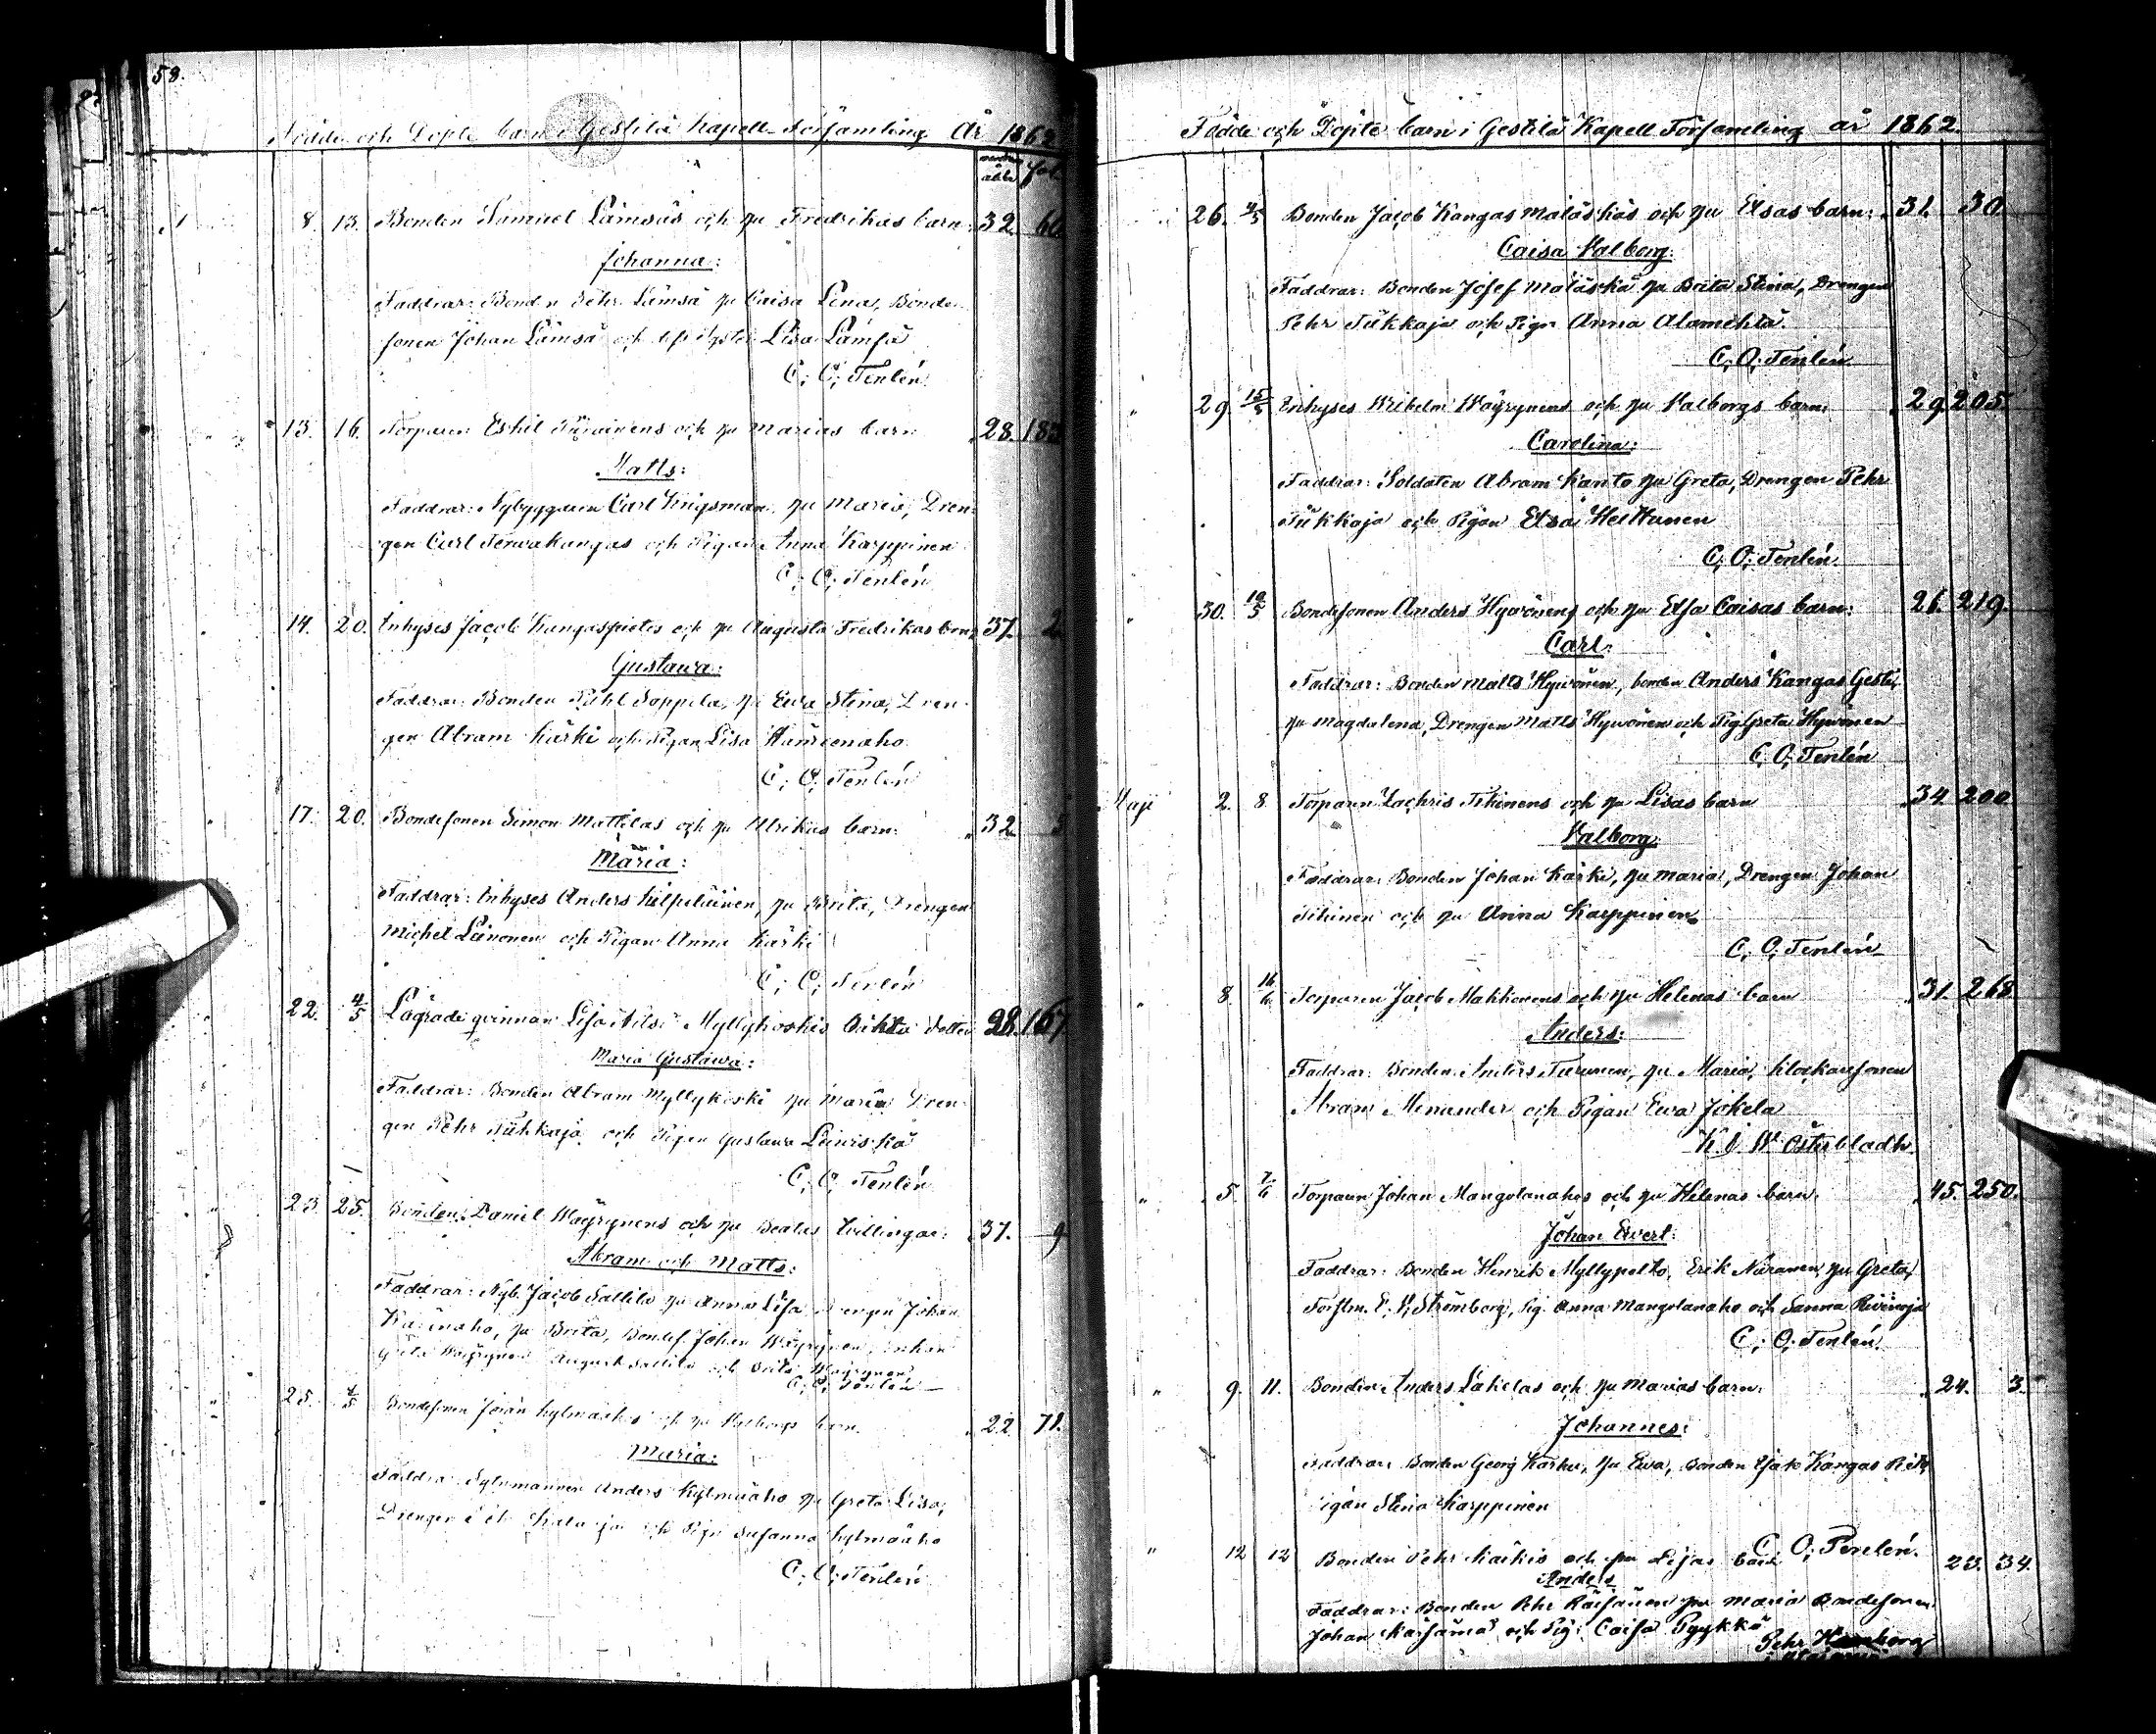 58.
Födde och Döpte barn i Gestilä Kapell-Församling År 1862
moderns ålder fol.
8. 13. Bonden Samuel Lämsäs och hu Fredrikas barn: 32. 66
Johanna:
Faddrar: Bonden Pehr Lämsä hu Caisa Lena, Bonde
sonen Johan Lämsä och Lisa Lämsä
C. O. Tenlén
13. 16. Torparen Eskil och hu Marias barn 28. 183
Matts:
Faddrar: Nybyggaren Carl Krigsman, hu Maria, Dren
gen Carl Terwakangas och Pigan Anna Karppinen
C. O. Tenlén
14. 20. Inhyses Jacob Kangaspietes och hu Augusta Fredrikas barn 37. 2
Gustawa:
Faddrar: Bonden Påhl Soppela, hu Ewa Stina, Dren
gen Abram Kärki och Pigan Lisa
C. O. Tenlén
17. 20. Bondesonen Simon Mattilas och hu Ulrikas barn: 32. 5
Maria:
Faddrar: Inhyses Anders Kilpeläinen, hu Brita, Drengen
Michel Leinonen och Pigan Anna Kärki
C. O. Tenlén
22. 4/5 Lägrade qvinnan Lisa Nils Myllykoskis oäkta dotter 28. 167
Maria Gustawa:
Faddrar: Bonden Abram Myllykoski hu Maria Dren
gen Pehr Tiikkaja och Pigan Gustawa Leiwiskä
C. O. Tenlén
23. 25. Bonden Daniel Wäyrynens och hu Beatas tvillingar: 37. 9
Abram och Matts:
Faddrar: Nyb. Jacob Sallila hu Anna Lisa Drengen Johan
hu Brita, Bondes. Johan Wäyrynen,
Greta Wäyrynen August Sallila och Brita Wäyrynen
C. O. Tenlén
25. 4/5 Bondesonen Johan Kylmäahos och hu Walborgs barn. 22. 71.
Maria:
Faddrar: Sytnmannen Anders Kylmäaho hu Greta Lisa,
Drengen och Pign Susanna Kylmäaho
C. O. Tenlén
Födde och Döpte barn i Gestilä Kapell Församling år 1862.
26. 4/5 Bonden Jacob Kangas Maläskäs och hu Elsas barn: 31. 30.
Caisa Walborg:
Faddrar: Bonden Josef Maläskä hu Brita Stina, Drengen
Pehr Tiikkaja och Pign Anna Alamehtä.
C. O. Tenlén
29. 15/5 Inhyses Wilhelm Wäyrynens och hu Walborgs barn: 29. 205.
Carolina:
Faddrar: Soldaten Abram Kanto hu Greta, Drengen Pehr
Tiikkaja och Pigan Elsa Heittunen
C. O. Tenlén.
30. 10/5 Bondesonen Anders Hywönens och hu Elsa Caisas barn: 26. 219.
Carl:
Faddrar: Bonden Matts Hywönen, bonden Anders Kangas Gesti,
hu Magdalena, Drengen Matts Hywönen och Pig Greta Hywönen
C. O. Tenlén
Maji 2. 8. Torparen Zachris Tihinens och hu Lisas barn 34. 200
Walborg:
Faddrar: Bonden Johan Kärki, hu Maria, Drengen Johan
Tihinen och hu Anna Karppinen
C. O. Tenlén
8. 16/6 Torparen Jacob Makkonens och hu Helenas barn 31. 268
Anders:
Faddrar: Bonden Anders Turunen, hu Maria, klockaresonen
Abram Menander och Pigan Ewa Jokela
K. J. W. Österbladh.
5. 7/6 Torparen Johan Mangolanahos och hu Helenas barn. 45. 250.
Johan Ewert:
Faddrar: Bonden Henrik Myllypelto, Erik Näränen, hu Greta,
Forstm. Strömberg, Pig. Anna Mangolanaho och Sanna
C. O. Tenlén.
9. 11. Bonden Anders Lakelas och hu Marias barn: 24. 3.
Johannes:
Faddrar: Bonden Georg Karhu, hu Ewa, Bonden Isak Kangas
Pigan Stina Karppinen
C. O. Tenlén.
12 12 Bonden Pehr Kaikis och hu Lisas barn 23. 34.
Anders
Faddrar: Bonden Pehr Räisänen hu Maria Bondesonen
Johan Kärsämä och Pig: Caisa Pyykkö
Pehr